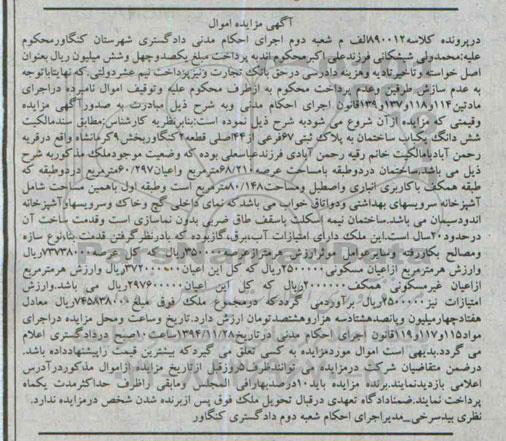 آگهی مزایده اموال
درپرونده کلاسه۸۹۰۰۱۲الف م شعبه دوم اجرای احکام مدنی دادگستری شهرستان کنگاورمحکوم
علیه:محمدولی شیشکانی فرزندعلی اکبرمحکوم اندبه پرداخت مبلغ یکصدوچهل وشش میلیون ریال بعنوان
اصل خواسته وتاخیرتادیه وهزینه دادرسی درحق بانک تجارت ونیزپرداخت نیم عشردولتی.که نهایتاباتوجه
به عدم سازش طرفین وعدم پرداخت محکوم به ازطرف محکوم علیه وتوقیف اموال نامبرده دراجرای
مادتین۱۱۴و۱۱۸و۱۳۷و۱۳۹قانون اجرای احکام مدنی وبه شرح ذیل مبادرت به صدورآگهی مزایده
وقیمتی که مزایده ازآن شروع می شودبه شرح ذیل نموده است:بنابرنظریه کارشناس:مطابق سندمالکیت
شش دانگ یکباب ساختمان به پلاک ثبتی۶۷فرعی از۴۴اصلی قطعه۲کنگاوربخش۹کرمانشاه واقع درقریه
رحمن آبادبامالکیت خانم رقیه رحمن آبادی فرزندعباسعلی بوده که وضعیت موجودملک مذکوربه شرح
ذیل می باشد.ساختمان دردوطبقه بامساحت عرصه۶۸/۲۱۰مترمربع واعیان۶۰/۲۹۷مترمربع دردوطبقه که
طبقه همکف باکاربری انباری واصطبل ومساحت۸۰/۱۴۸مترمربع است وطبقه اول باهمین مساحت شامل
آشپزخانه سرویسهای بهداشتی ودواتاق خواب می باشدکه نمای داخلی گچ وخاک وسرویسهاوآشپزخانه
اندودسیمان می باشد.ساختمان نیمه اسکلت باسقف طاق ضربی بدون نماسازی است وقدمت ساخت آن
درحدود۲۰سال است.این ملک دارای امتیازات آب،برق،گازبوده که بادرنظرگرفتن قدمت بنا،نوع سازه
ومصالح بکاررفته وسایرعوامل موثرارزش هرمترازعرصه۳۵۰۰۰۰ریال که کل عرصه۷۳۷۳۸۰۰۰ریال
وارزش هرمترمربع ازاعیان مسکونی۲۵۰۰۰۰۰ریال که کل این اعیان۳۷۲۰۰۰۰۰۰ریال وارزش هرمترمربع
ازاعیان غیرمسکونی همکف۲۰۰۰۰۰۰ریال که کل این اعیان۲۹۷۶۰۰۰۰۰ریال می باشد.وارزش
امتیازات نیز۲۵۰۰۰۰۰ریال برآوردمی گرددکه درمجموع ملک فوق مبلغ۷۴۵۸۳۸۰۰۰ریال معادل
هفتادچهارمیلیون وپانصدهشتادسه هزاروهشتصدتومان ارزش دارد.تاریخ وساعت ومحل مزایده دراجرای
مواد۱۱۵و۱۱۷و۱۱۹قانون اجرای احکام مدنی درتاریخ۱۳۹۴/۱۱/۲۸ساعت۱۰صبح دردادگستری اعلام
می گردد.بدیهی است اموال موردمزایده به کسی تعلق می گیردکه بیشترین قیمت راپیشنهادداده باشد.
درضمن متقاضیان شرکت درمزایده می توانندظرف۵روزقبل ازتاریخ مزایده ازاموال مذکوردرآدرس
اعلامی بازدیدنمایند.برنده مزایده باید۱۰درصدبهارافی المجلس ومابقی راظرف حداکثرمدت یکماه
پرداخت نمایند.ضمنادادگاه تعهدی درقبال تحویل ملک فوق پس ازبرنده شدن شخص درمزایده ندارد.
نظری بیدسرخی_مدیراجرای احکام شعبه دوم دادگستری کنگاور